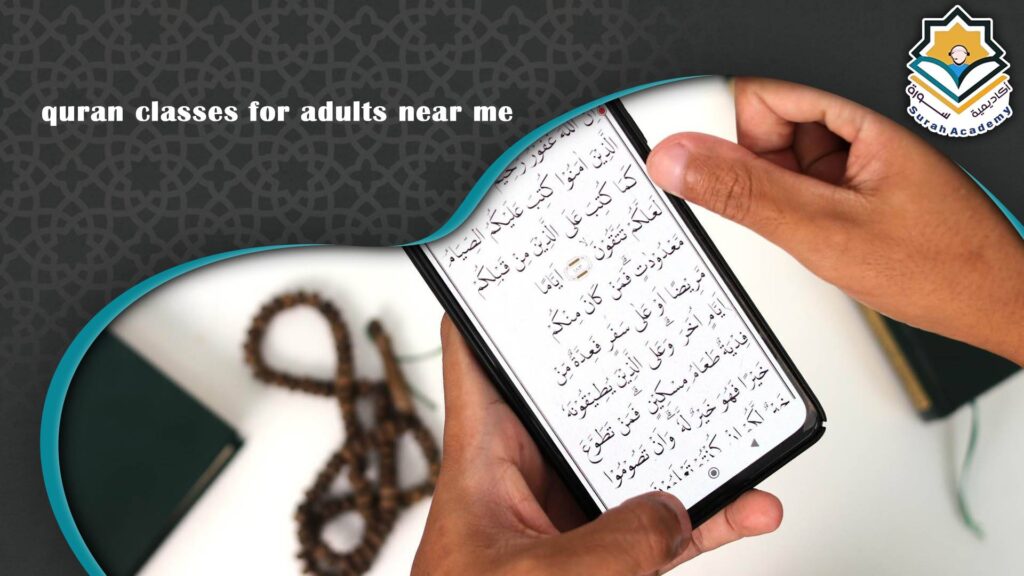 quran classes for adults near me
اللّٰهَ غَفُورٌ رَحِيمٌ
الَّذِينَ اٰمَنُوا كُتِبَ عَلَيْكُمُ الصِّيَامُ
كَمَا كُتِبَ عَلَى الَّذِينَ مِنْ قَبْلِكُمْ
لَعَلَّكُمْ تَتَّقُونَ اَيَّامًا
مَعْدُودَاتٍ فَمَنْ كَانَ مِنْكُمْ
مَرِيضًا اَوْ عَلٰى سَفَرٍ فَعِدَّةٌ مِنْ
اَيَّامٍ اُخَرَ وَعَلَى الَّذِينَ يُطِيقُونَهُ
فِدْيَةٌ طَعَامُ مِسْكِينٍ فَمَنْ تَطَوَّعَ
خَيْرًا فَهُوَ خَيْرٌ لَهُ وَاَنْ تَصُومُوا
لَكُمْ اِنْ كُنْتُمْ
أكاديمية سورة
Surah.Academy